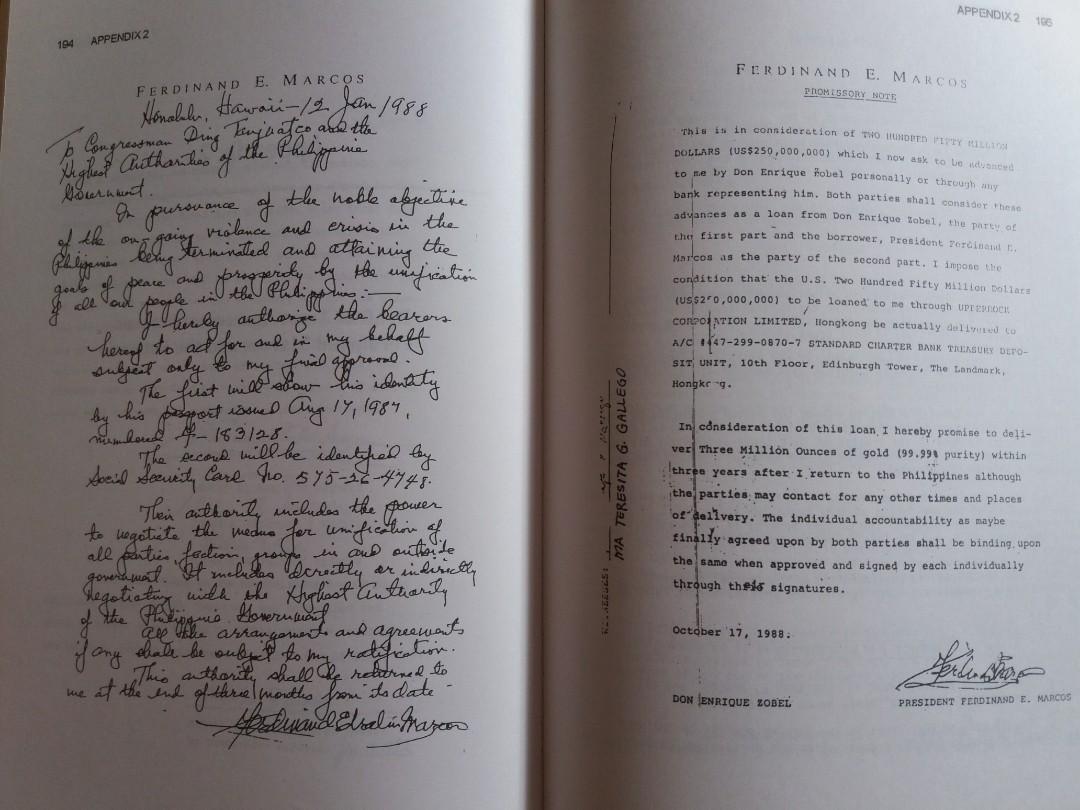 194 APPENDIX 2
FERDINAND E. MARCOS
Honolulu, Hawaii - 12 Jan 1988
To Congressman Ding Tanjuatco and the
Highest Authorities of the Philippine
Government.
In pursuance of the noble objective
of the on-going violence and crisis in the
Philippines being terminated and attaining the
goals of peace and prosperity by the unification
of all our people in the Philippines:—
I hereby authorize the bearers
hereof to act for and in my behalf
subject only to my final approval.
The first will show his identity
by his passport issued Aug 17, 1987,
numbered 183128.
The second will be identified by
Social Security Card No.
Their authority includes the power
to negotiate the means for unification of
all parties, faction, groups in and outside
government. It includes directly or indirectly
negotiating with the Highest Authority
of the Philippine Government
All the arrangements and agreements
if any shall be subject to my ratification.
This authority shall be returned to
me at the end of three months from its date -
Ferdinand Edralin Marcos
APPENDIX 2 195
FERDINAND E. MARCOS
PROMISSORY NOTE
This is in consideration of TWO HUNDRED FIFTY MILLION
DOLLARS (US$250,000,000) which I now ask to be advanced
to me by Don Enrique Zobel personally or through any
bank representing him. Both parties shall consider these
advances as a loan from Don Enrique Zobel, the party of
the first part and the borrower, President Ferdinand E.
Marcos as the party of the second part. I impose the
condition that the U.S. Two Hundred Fifty Million Dollars
(US$250,000,000) to be loaned to me through UPPERROCK
CORPORATION LIMITED, Hongkong be actually delivered to
A/C #447-299-0870-7 STANDARD CHARTER BANK TREASURY DEPO-
SIT UNIT, 10th Floor, Edinburgh Tower, The Landmark,
Hongkong.
In consideration of this loan I hereby promise to deli-
ver Three Million Ounces of gold (99.99% purity) within
three years after I return to the Philippines although
the parties may contact for any other times and places
of delivery. The individual accountability as maybe
finally agreed upon by both parties shall be binding upon
the same when approved and signed by each individually
through their signatures.
October 17, 1988.
DON ENRIQUE ZOBEL
PRESIDENT FERDINAND E. MARCOS
WITNESSES:
MA TERESITA G. GALLEGO